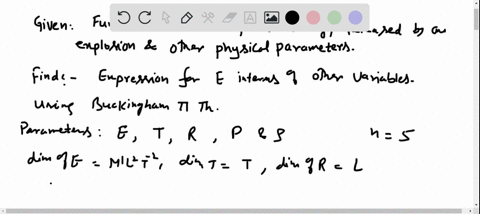 Given: Fu
released by an
explosion & other physical parameters.
Find:- Expression for E interms of other variables.
using Buckingham Π Th.
Parameters: E, T, R, P & ρ n = 5
dim of E = M¹L²T⁻², dim T = T, dim of R = L